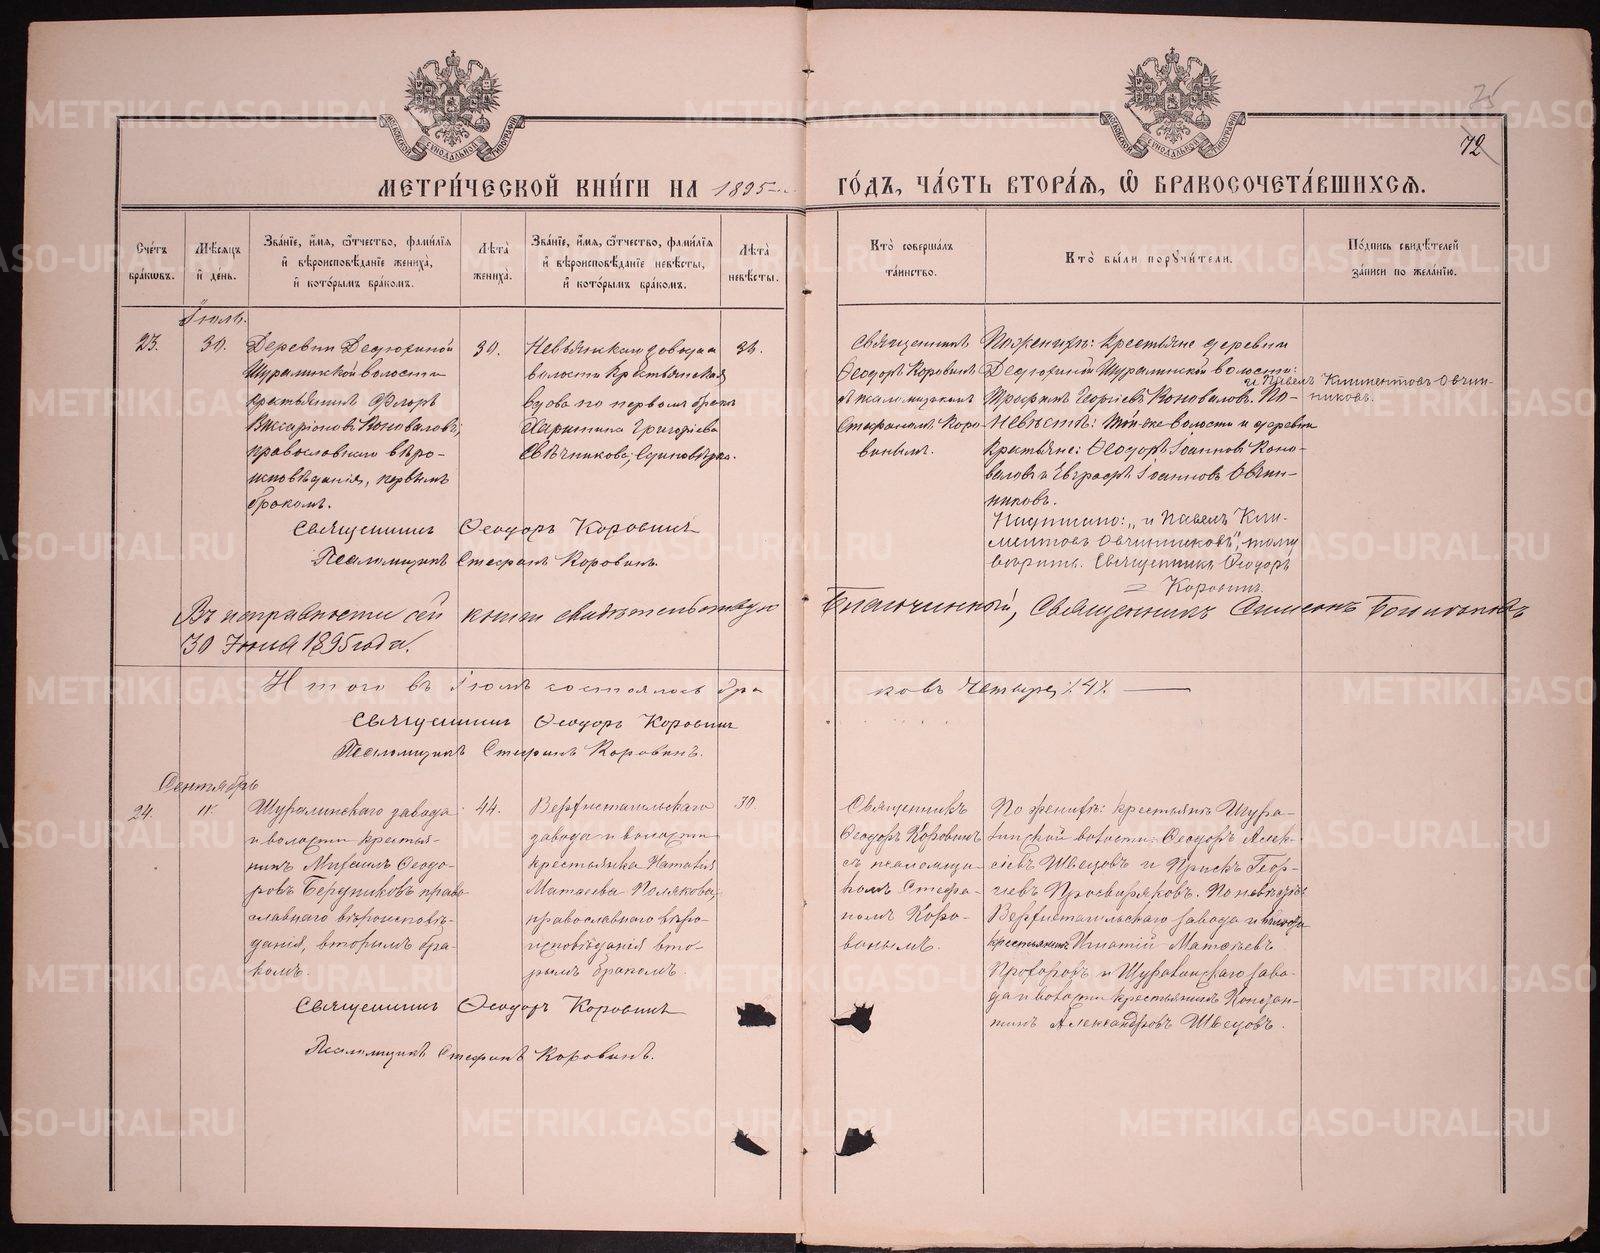 75
72
МОСКОВСКОЙ СѴНОДАЛЬНОЙ ТИПОГРАФІИ
МОСКОВСКОЙ СѴНОДАЛЬНОЙ ТИПОГРАФІИ
МЕТРИ́ЧЕСКОЙ КНИ́ГИ НА 1895 ГО́ДЪ, ЧА́СТЬ ВТОРА́Ѧ, Ѽ БРАКОСОЧЕТА́ВШИХСѦ.
Сче́тъ бра́кѡвъ.
Мѣ́сѧцъ и҆ де́нь.
Зва́нїе, и҆́мѧ, ѻ҆́тчество, фами́лїѧ и҆ вѣроисповѣ́данїе жениха̀, и҆ кото́рымъ бра́комъ.
Лѣта̀ жениха̀.
Зва́нїе, и҆́мѧ, ѻ҆́тчество, фами́лїѧ и҆ вѣроисповѣ́данїе невѣ́сты, и҆ кото́рымъ бра́комъ.
Лѣта̀ невѣ́сты.
Кто̀ соверша́лъ та́инство.
Кто̀ бы́ли поручи́тели.
По́дпись свидѣ́телей за́писи по жела́нїю.
Іюль.
23.
30.
Деревни Дедюхиной
Шуралинской волости
крестьянинъ Ѳедоръ
Виссаріоновъ Коноваловъ,
православнаго вѣро-
исповѣданія, первымъ
бракомъ.
30.
Невьянскаго завода и
волости крестьянская
вдова по первомъ бракѣ
Харитина Григорьева
Свѣчникова, Единовѣрка.
Священникъ
Ѳеодоръ Коровинъ
съ псаломщикомъ
Стефаномъ Коро-
винымъ.
По женихѣ: крестьяне деревни
Дедюхиной Шуралинской волости:
и Павелъ Климентовъ Овчин-
никовъ.
Трофимъ Георгіевъ Коноваловъ. По
невѣстѣ: той-же волости и деревни
крестьяне: Ѳеодоръ Іоанновъ Коно-
валовъ и Евграфъ Іоанновъ Овчин-
никовъ.
Надписано: „и Павелъ Кли-
ментовъ Овчинниковъ", тому
вѣрить. Священникъ Ѳеодоръ
Коровинъ.
Священникъ Ѳеодоръ Коровинъ
Псаломщикъ Стефанъ Коровинъ.
Въ исправности сей книги свидѣтельствую Благочинный, Священникъ Симеонъ
30 Іюля 1895 года.
Итого въ Іюлѣ состоялось бра ковъ четыре /4/.
Священникъ Ѳеодоръ Коровинъ
Псаломщикъ Стефанъ Коровинъ.
Сентябрь
24.
Шуралинскаго завода
и волости крестья-
нинъ Михаилъ Ѳеодо-
ровъ Бердниковъ право-
славнаго вѣроисповѣ-
данія, вторымъ бра-
комъ.
44.
Верхнетагильскаго
завода и волости
крестьянка Наталія
Матвѣева Полякова,
православнаго вѣро-
исповѣданія вто-
рымъ бракомъ.
30.
Священникъ
Ѳеодоръ Коровинъ
съ псаломщи-
комъ Стефа-
номъ Коро-
винымъ.
По женихѣ: крестьяне Шура-
линской волости: Ѳеодоръ Алек-
сіевъ Швецовъ и Прискъ Геор-
гіевъ Просвиряковъ. По невѣстѣ:
Верхнетагильскаго завода и волости
крестьянинъ Игнатій Матвѣевъ
Прохоровъ и Шуралинскаго заво-
да и волости крестьянинъ Констан-
тинъ Александровъ Швецовъ.
Священникъ Ѳеодоръ Коровинъ
Псаломщикъ Стефанъ Коровинъ.
METRIKI.GASO-URAL.RU